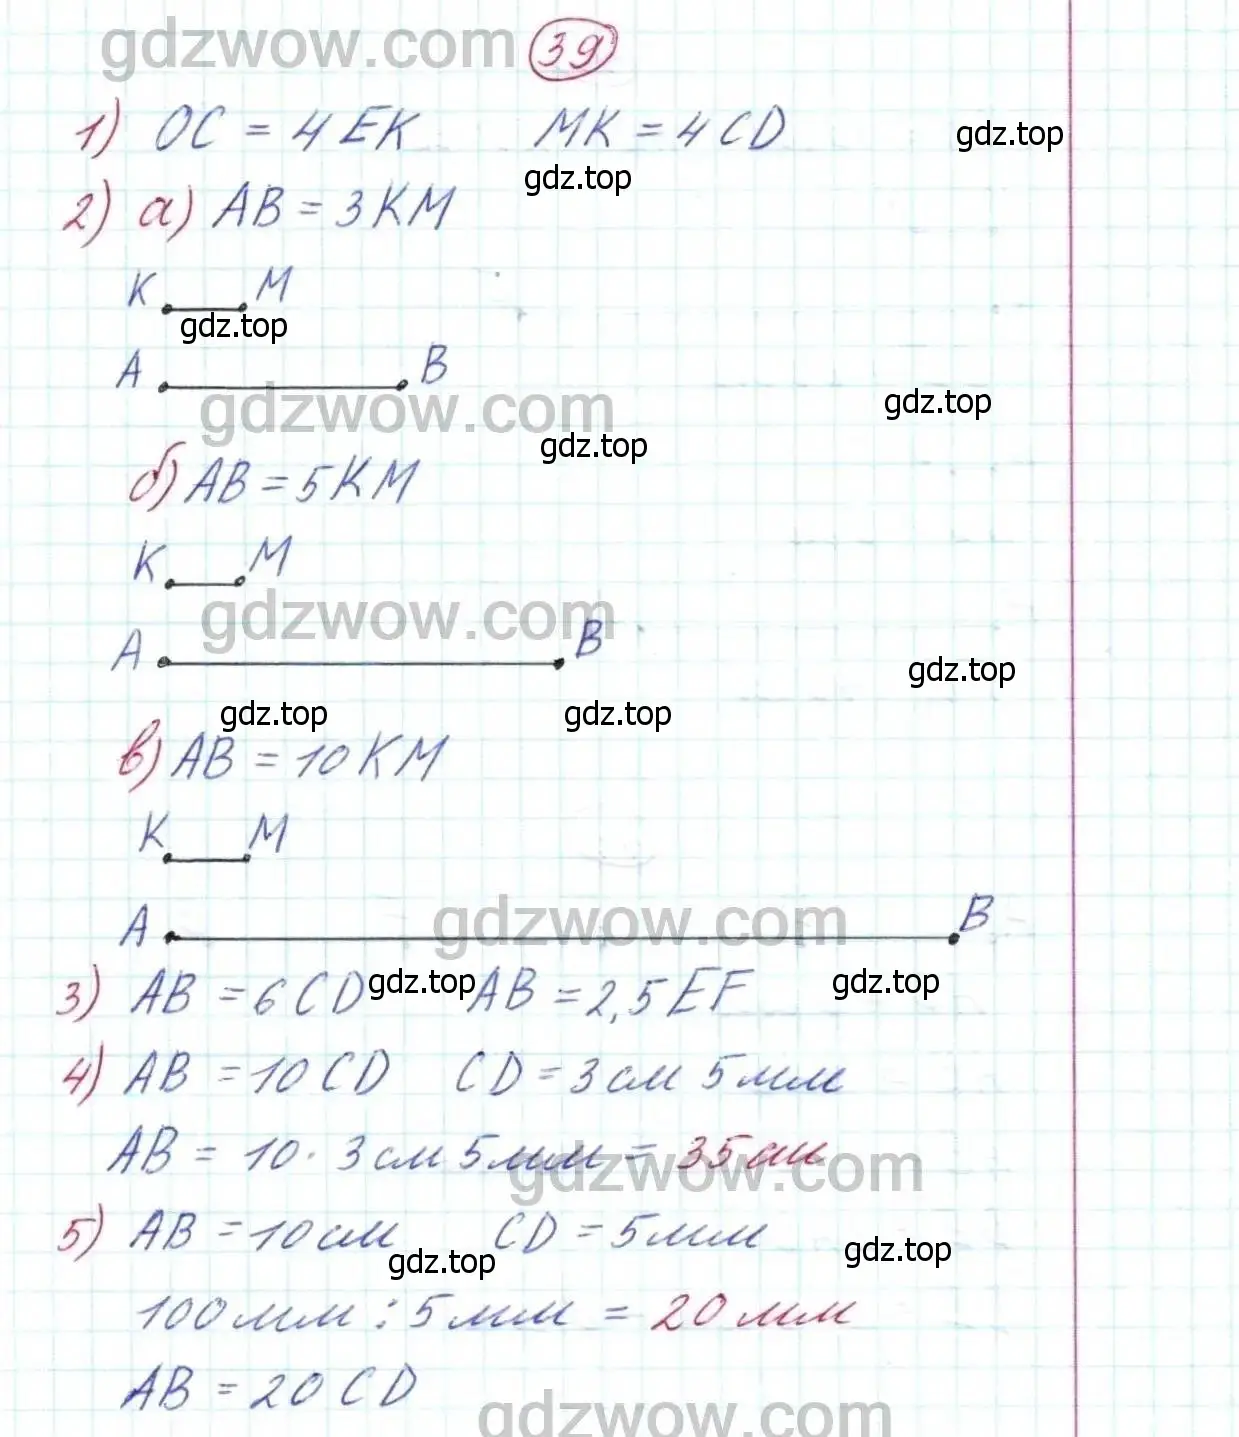 gdzwow.com 39
1) OC = 4 EK MK = 4 CD gdz.top
gdz.top
2) а) AB = 3 KM
K M
gdz.top
A B
gdzwow.com gdz.top
gdz.top
б) AB = 5 KM
K M
gdzwow.com
A B
gdz.top
gdz.top gdz.top
в) AB = 10 KM
K M
A gdzwow.com B
3) AB = 6 CD gdz.top AB = 2,5 EF gdz.top
4) AB = 10 CD CD = 3 см 5 мм
AB = 10 · 3 см 5 мм = 35 см
gdzwow.com
5) AB = 10 см CD = 5 мм gdz.top
gdz.top
100 мм : 5 мм = 20 мм
AB = 20 CD
gdzwow.com